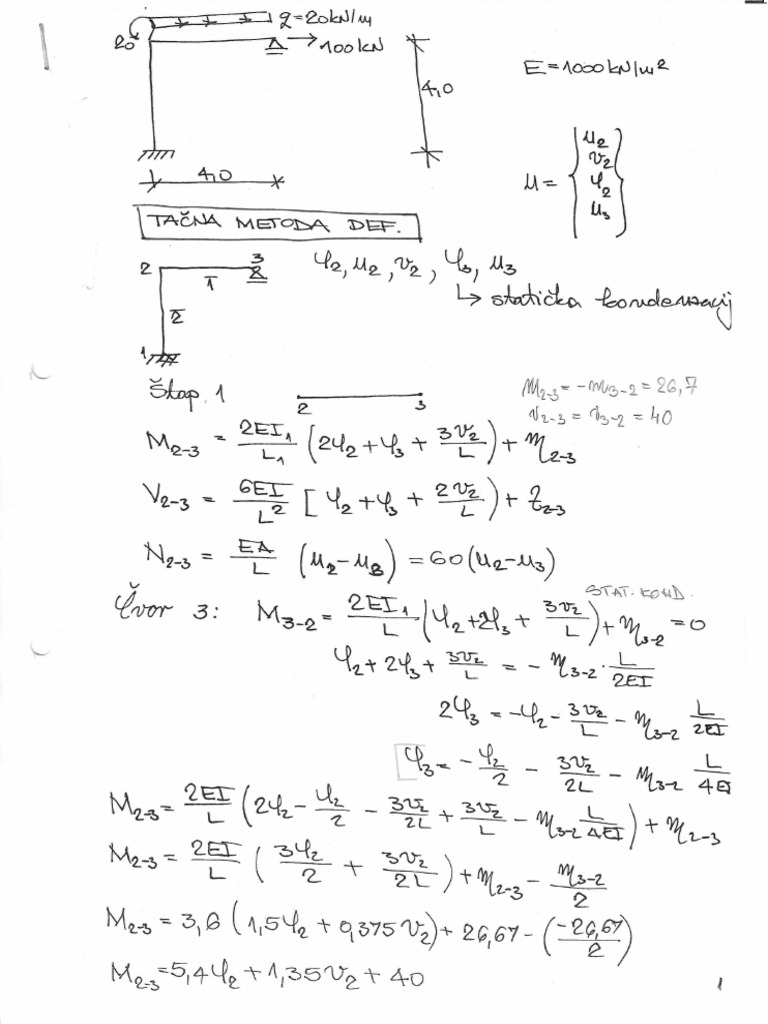 q=20kN/m
20
100kN
E=1000kN/m²
4,0
4,0
u = { u₂ v₂ φ₂ u₃ }
TAČNA METODA DEF.
2 3 φ₂, u₂, v₂, φ₃, u₃
1̄
↳ statička kondenzacij
2̄
1
Štap. 1
2 3
m₂₋₃ = -m₃₋₂ = 26,7
v₂₋₃ = v₃₋₂ = 40
M₂₋₃ = 2EI₁/L₁ (2φ₂ + φ₃ + 3v₂/L) + m₂₋₃
V₂₋₃ = 6EI/L² [φ₂ + φ₃ + 2v₂/L) + z₂₋₃
N₂₋₃ = EA/L (u₂ - u₃) = 60 (u₂ - u₃)
STAT. KOND.
Čvor 3: M₃₋₂ = 2EI₁/L (φ₂ + 2φ₃ + 3v₂/L) + m₃₋₂ = 0
φ₂ + 2φ₃ + 3v₂/L = - m₃₋₂ · L/2EI
2φ₃ = -φ₂ - 3v₂/L - m₃₋₂ L/2EI
φ₃ = - φ₂/2 - 3v₂/2L - m₃₋₂ L/4EI
M₂₋₃ = 2EI/L (2φ₂ - φ₂/2 - 3v₂/2L + 3v₂/L - m₃₋₂ L/4EI) + m₂₋₃
M₂₋₃ = 2EI/L (3φ₂/2 + 3v₂/2L) + m₂₋₃ - m₃₋₂/2
M₂₋₃ = 3,6 (1,5φ₂ + 0,375 v₂) + 26,67 - (-26,67/2)
M₂₋₃ = 5,4φ₂ + 1,35v₂ + 40
1